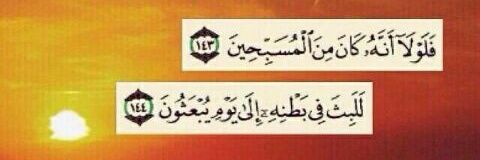 فَلَوْلَآ أَنَّهُۥ كَانَ مِنَ ٱلْمُسَبِّحِينَ ١٤٣
لَلَبِثَ فِى بَطْنِهِۦٓ إِلَىٰ يَوْمِ يُبْعَثُونَ ١٤٤